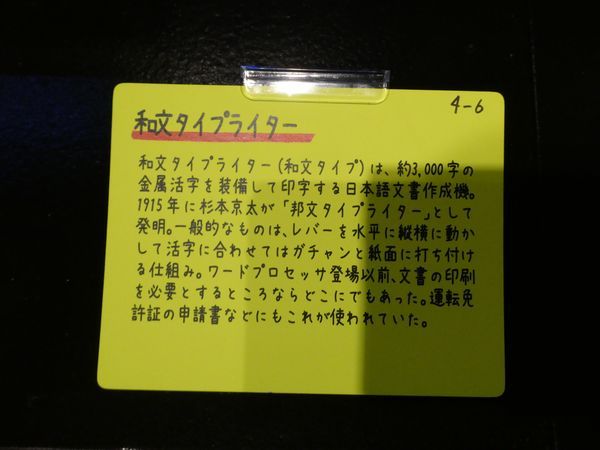 4-6
和文タイプライター
和文タイプライター(和文タイプ)は、約3,000字の
金属活字を装備して印字する日本語文書作成機。
1915年に杉本京太が「邦文タイプライター」として
発明。一般的なものは、レバーを水平に縦横に動か
して活字に合わせてはガチャンと紙面に打ち付け
る仕組み。ワードプロセッサ登場以前、文書の印刷
を必要とするところならどこにでもあった。運転免
許証の申請書などにもこれが使われていた。